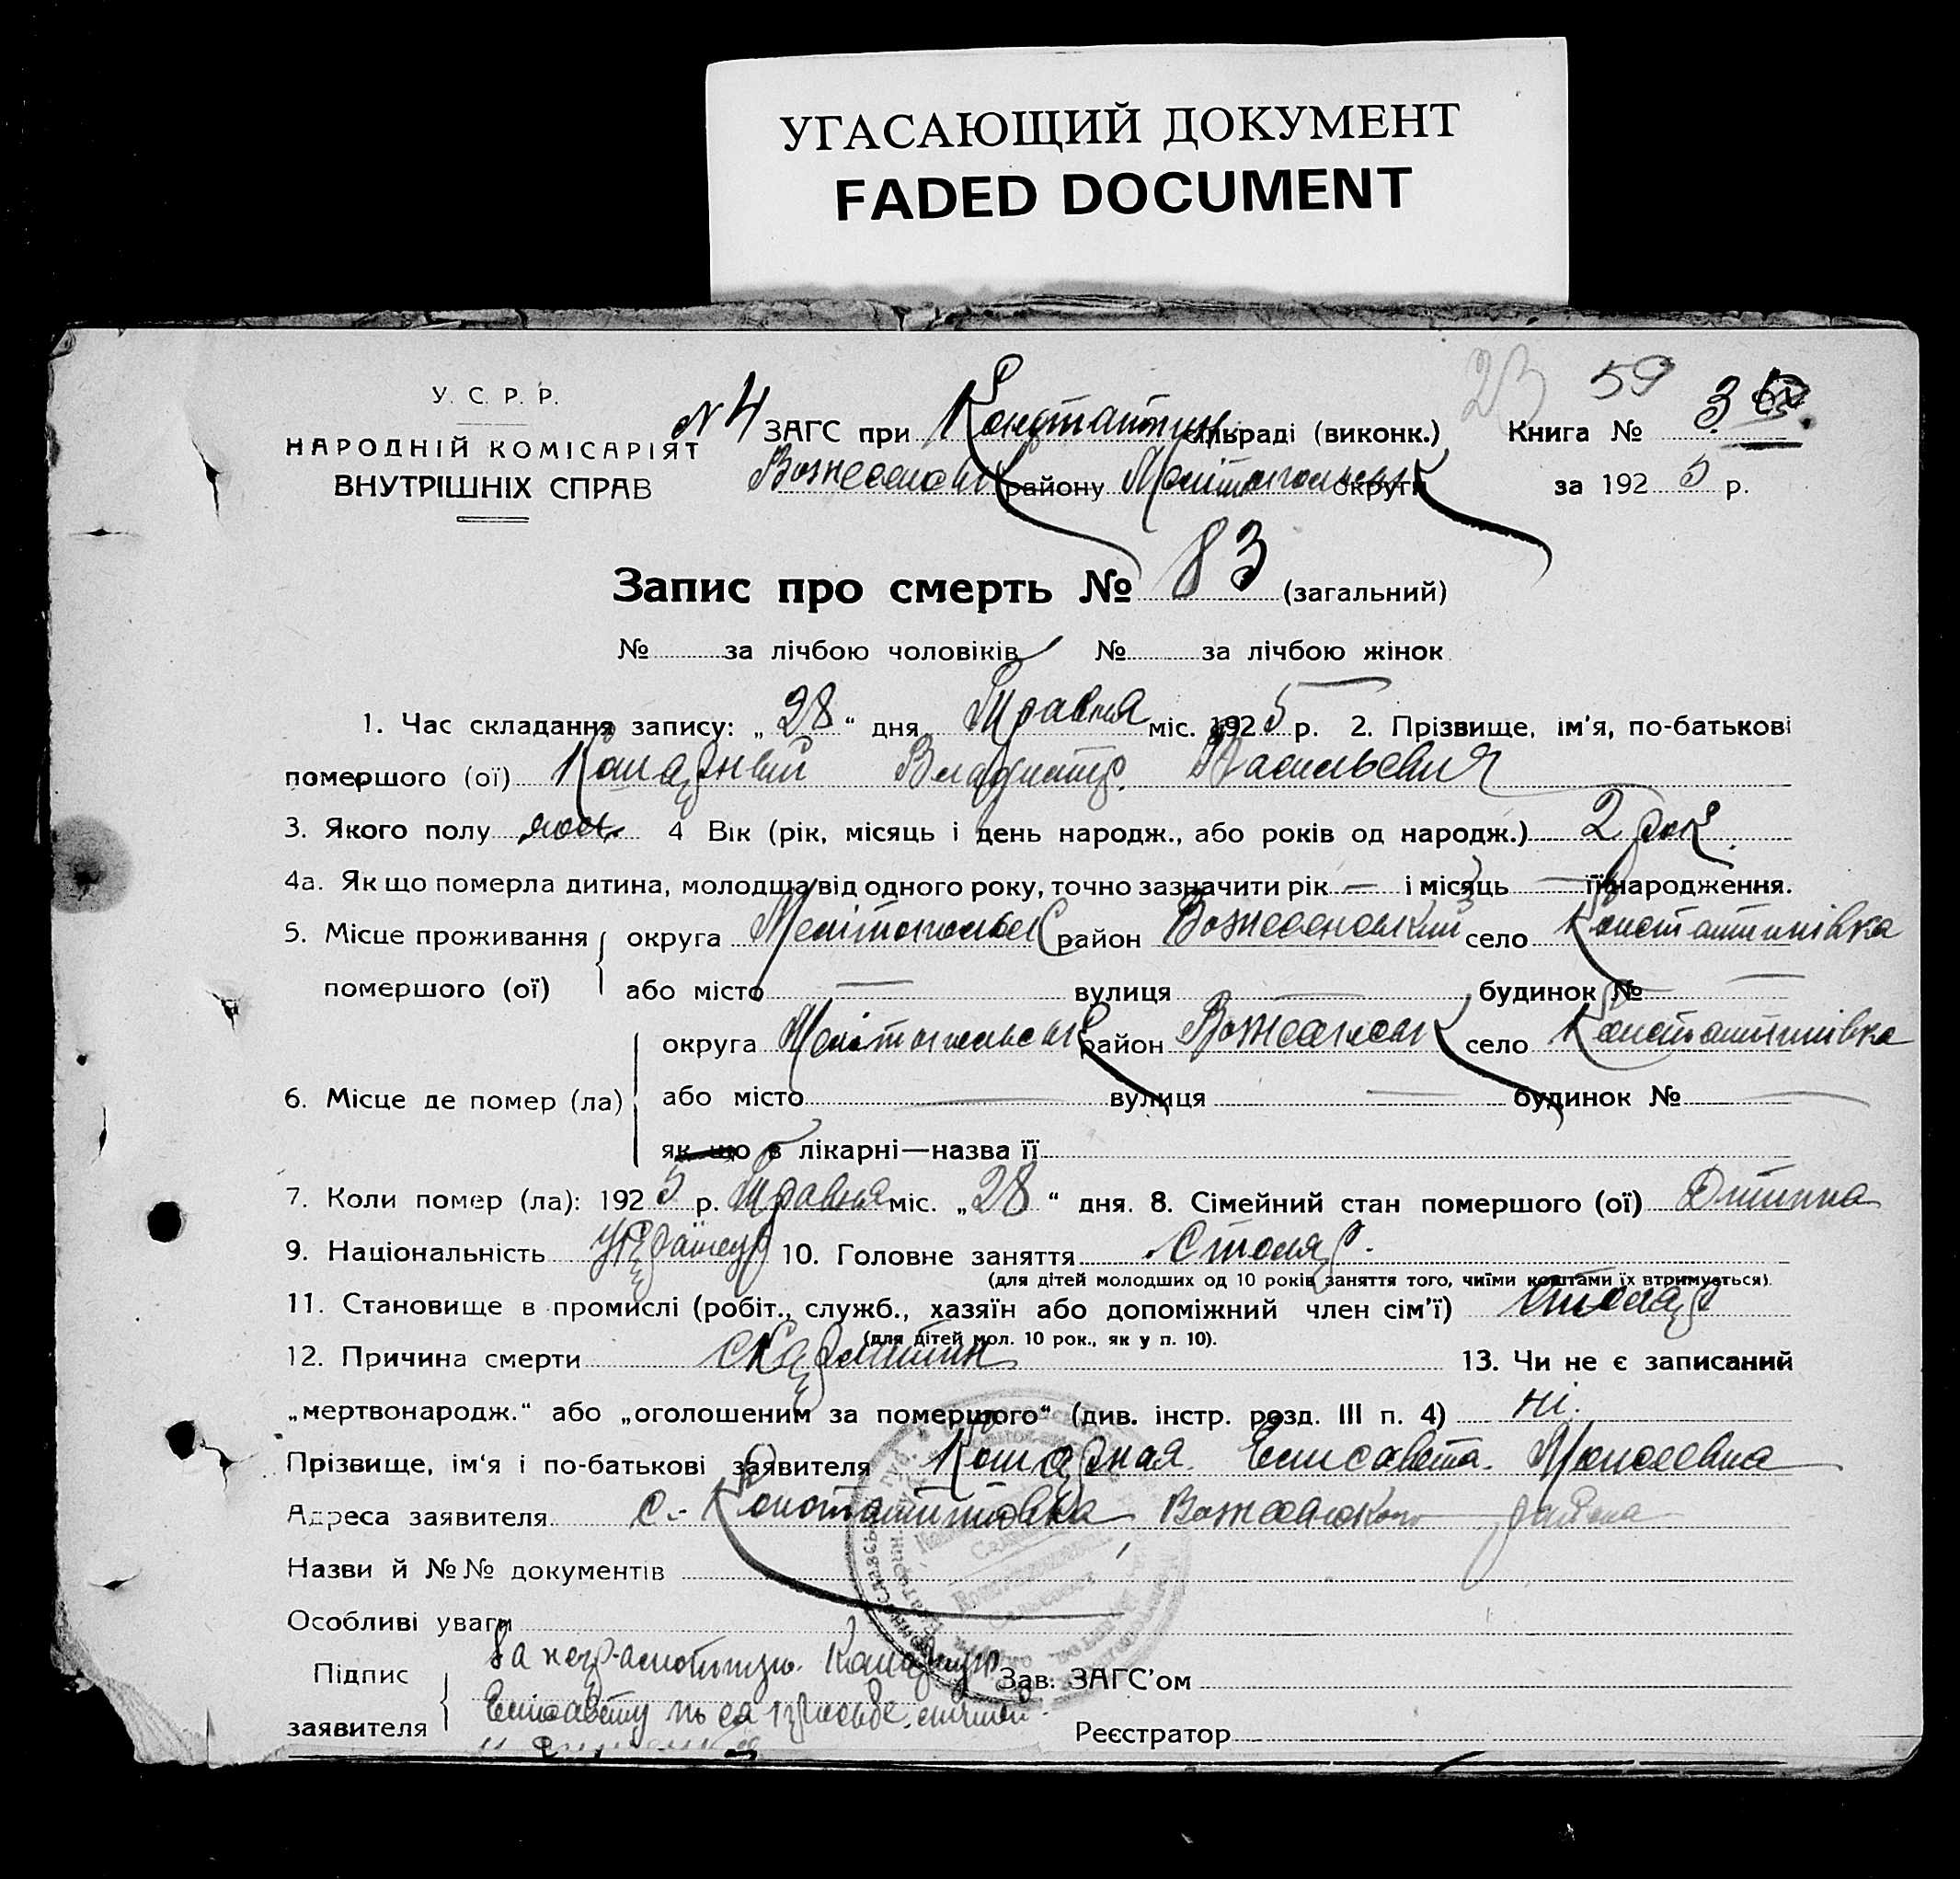 УГАСАЮЩИЙ ДОКУМЕНТ
FADED DOCUMENT
23 59
У. С. Р. Р.
НАРОДНІЙ КОМІСАРІЯТ
ВНУТРІШНІХ СПРАВ
N 4 ЗАГС при Константин. сільраді (виконк.) Книга № 3
Вознесенськ району Мелітопольськ округи за 1925 р.
Запис про смерть № 83 (загальний)
№ за лічбою чоловіків № за лічбою жінок
1. Час складання запису: „28“ дня Травня міс. 1925 р. 2. Прізвище, ім'я, по-батькові
помершого (ої) Кошарный Владимир. Васильевич
3. Якого полу 4 Вік (рік, місяць і день народж., або років од народж.) 2 рок.
4а. Як що померла дитина, молодша від одного року, точно зазначити рік — і місяць — її народження.
5. Місце проживання помершого (ої) округа Мелітопольськ район Вознесеновський село Константинівка
або місто — вулиця — будинок № —
6. Місце де помер (ла) округа Мелітопольськ район Вознесенськ село Константинівка
або місто — вулиця — будинок № —
як що в лікарні—назва її
7. Коли помер (ла): 1925 р. Травня міс. „28“ дня. 8. Сімейний стан помершого (ої) Дитина
9. Національність Українец 10. Головне заняття Столяр.
(для дітей молодших од 10 років заняття того, чиїми коштами їх втримується).
11. Становище в промислі (робіт., служб., хазяїн або допоміжний член сім'ї) столяр
(для дітей мол. 10 рок., як у п. 10).
12. Причина смерти скарлатин 13. Чи не є записаний
„мертвонародж.“ або „оголошеним за помершого“ (див. інстр. розд. III п. 4) ні.
Прізвище, ім'я і по-батькові заявителя Кошарная. Елисавета. Моисеевна
Адреса заявителя с.- Константиновка Вознесенского района
Назви й №№ документів
Особливі уваги
Підпис заявителя За неграмотную. Кошарную
Елисавету по ея просьбе.
Зав. ЗАГС'ом
Реєстратор